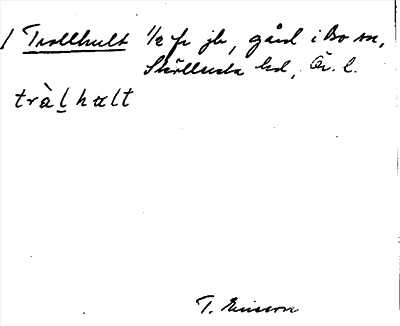 / Trollhult 1/2 fr jb, gård i Bo sn,
Sköllersta hd, Ör. l.
tràlhult
T. Ericsson